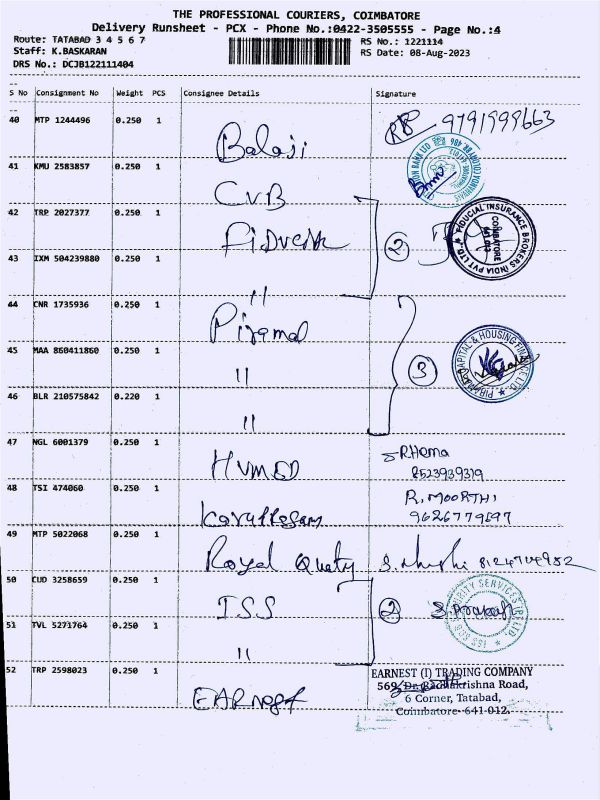 THE PROFESSIONAL COURIERS, COIMBATORE
Delivery Runsheet - PCX - Phone No.:0422-3505555 - Page No.:4
Route: TATABAD 3 4 5 6 7
RS No.: 1221114
Staff: K.BASKARAN
RS Date: 08-Aug-2023
DRS No.: DCJB122111404
S No Consignment No Weight PCS Consignee Details Signature
40 MTP 1244496 0.250 1
Balaji 9791999663
41 KMU 2583857 0.250 1
CVB
42 TRP 2027377 0.250 1
2
FIDUCIAL INSURANCE BROKERS INDIA PVT LTD.
COIMBATORE
43 IXM 504239880 0.250 1
"
44 CNR 1735936 0.250 1
Piramal
45 MAA 860411860 0.250 1
" 3
CAPITAL & HOUSING FINANCE LTD.
46 BLR 210575842 0.220 1
"
47 NGL 6001379 0.250 1
Hema
8523939319
48 TSI 474060 0.250 1
R. MOORTHI
9626779597
49 MTP 5022068 0.250 1
Royal 8124704952
50 CUD 3258659 0.250 1
ISS 2
51 TVL 5271764 0.250 1
"
52 TRP 2598023 0.250 1
EARNEST (I) TRADING COMPANY
569, Dr. Radhakrishna Road,
6 Corner, Tatabad,
Coimbatore- 641 012.